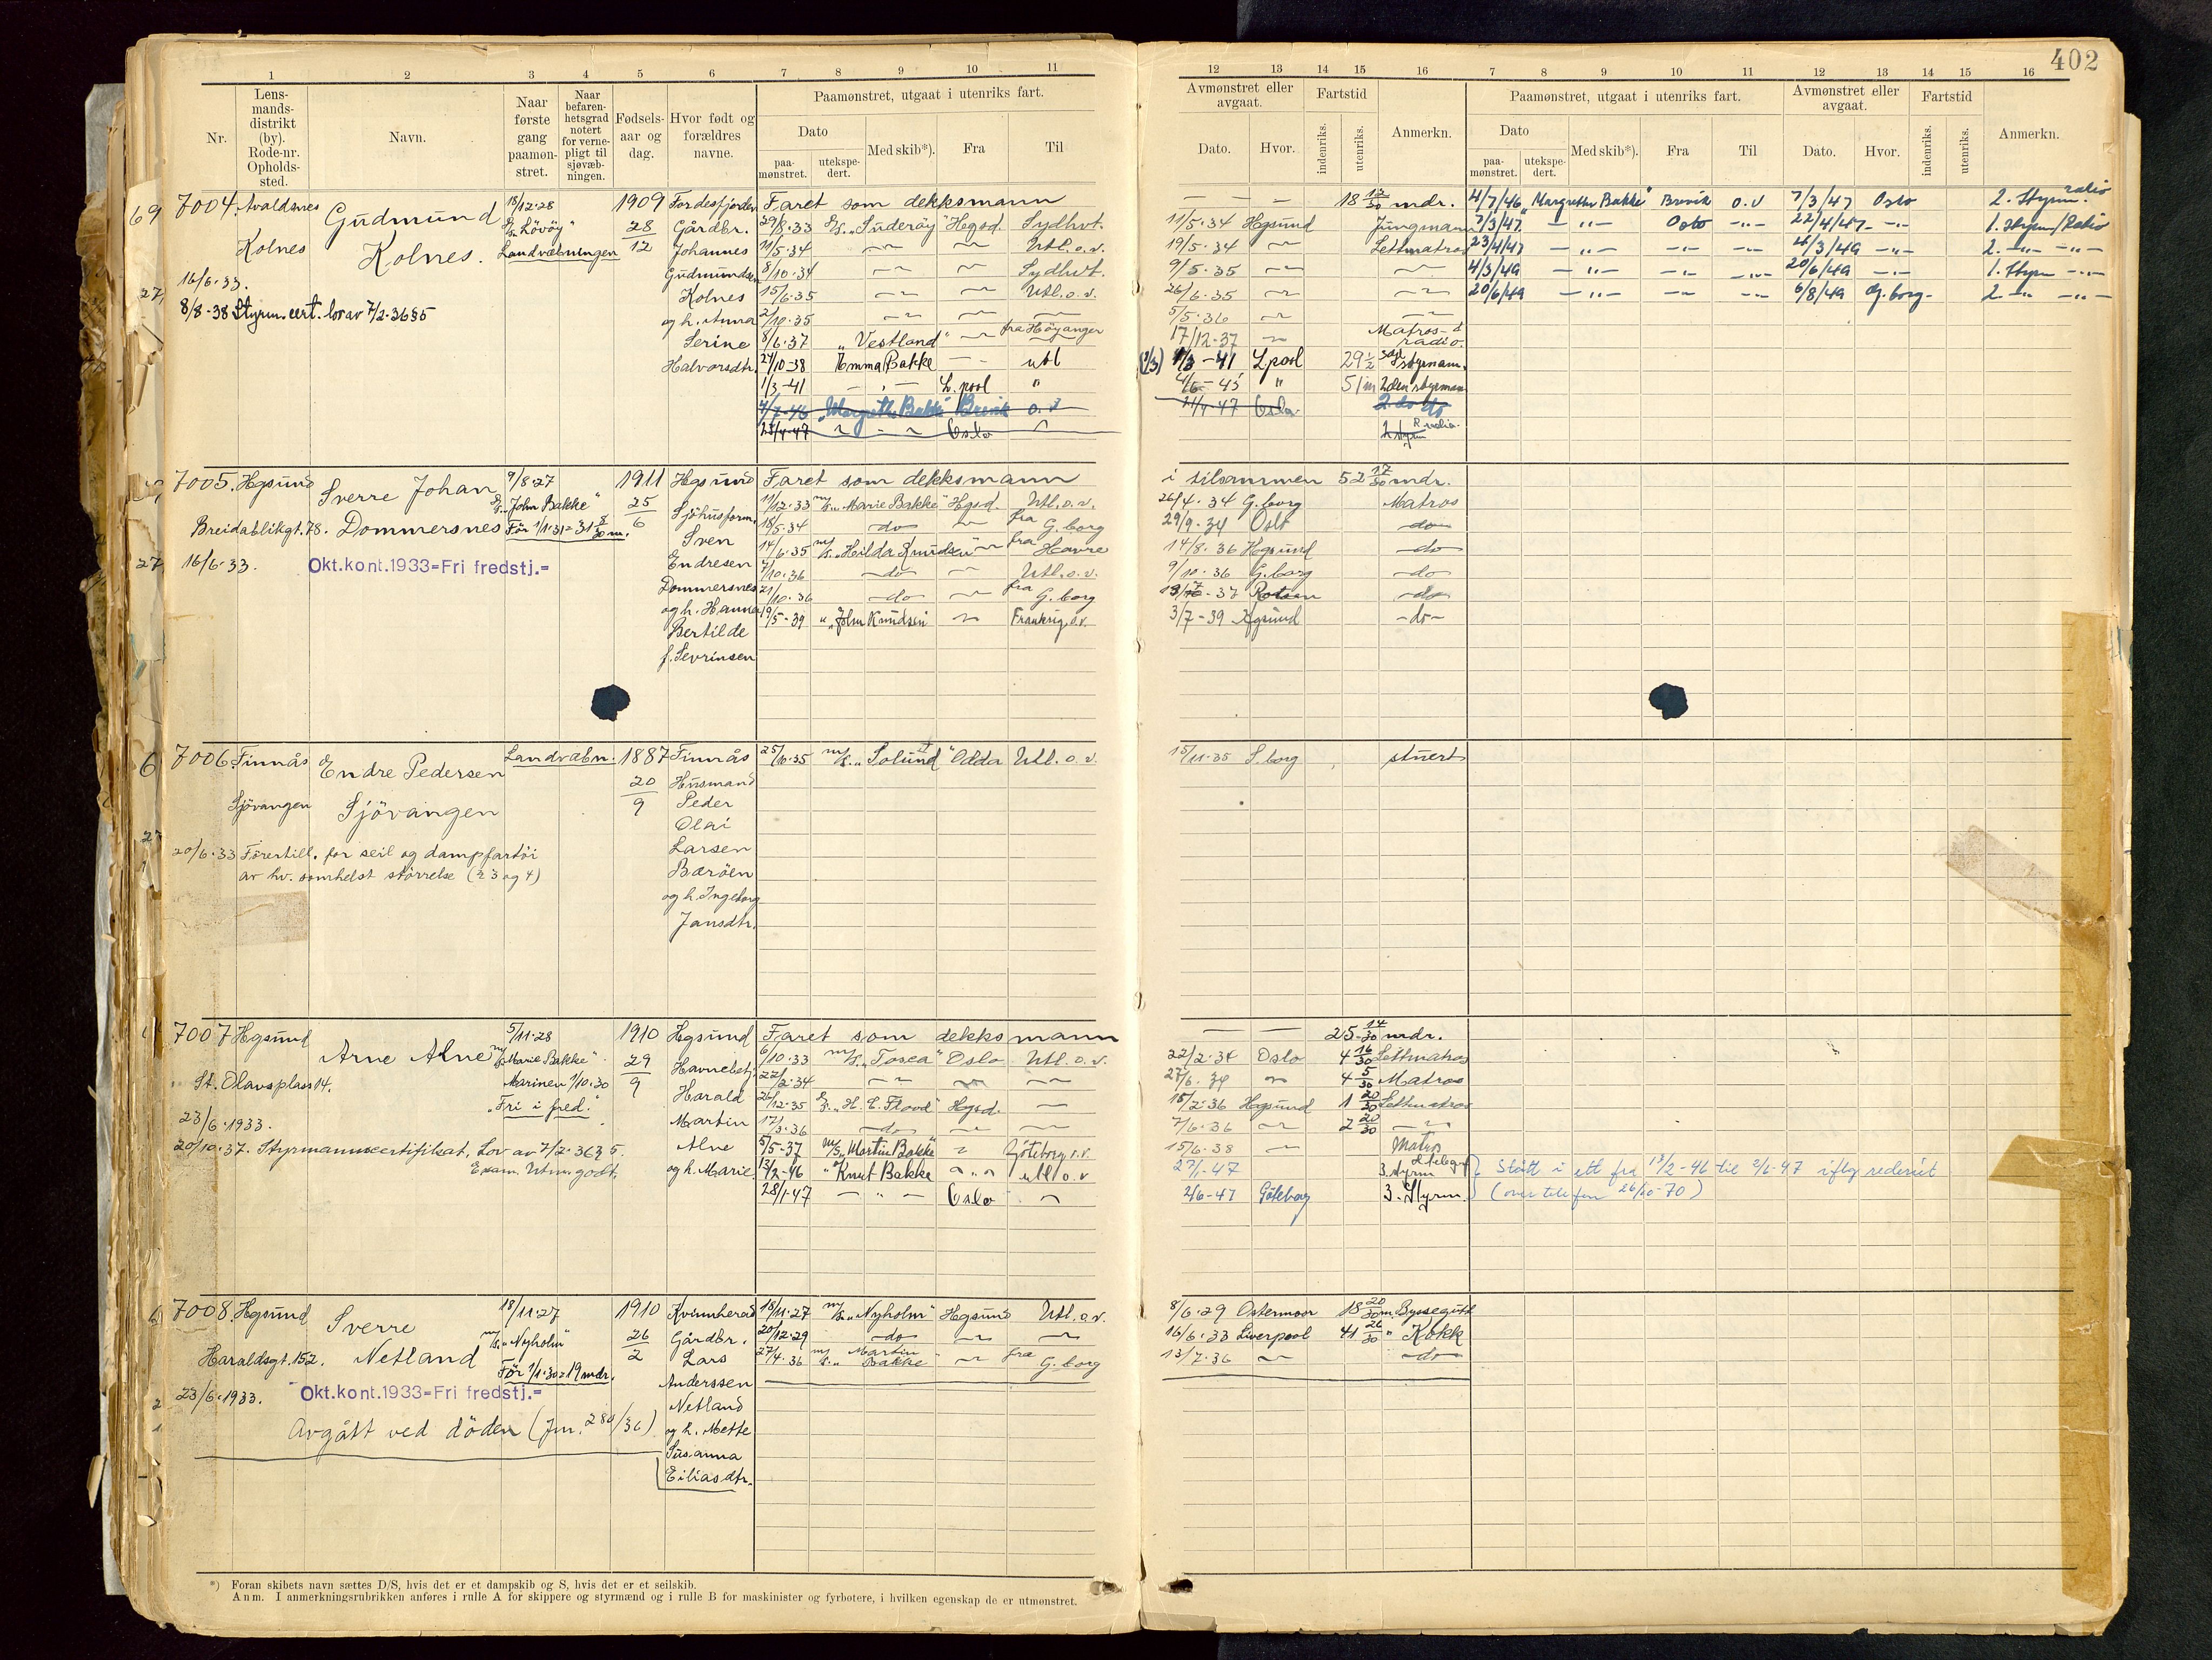 402
1 2 3 4 5 6 7 8 9 10 11
12 13 14 15 16 7 8 9 10 11 12 13 14 15 16
Nr.
Lens-
mands-
distrikt
(by).
Rode-nr.
Opholds-
sted.
Navn.
Naar
første
gang
paamøn-
stret.
Naar
befaren-
hetsgrad
notert
for verne-
pligt til
sjøvæb-
ningen.
Fødsels-
aar og
dag.
Hvor født og
forældres
navne.
Paamønstret, utgaat i utenriks fart.
Dato
paa-
mønstret.
utekspe-
dert.
Med skib*).
Fra
Til
Avmønstret eller
avgaat.
Dato.
Hvor.
Fartstid
indenriks.
utenriks.
Anmerkn.
Paamønstret, utgaat i utenriks fart.
Dato
paa-
mønstret.
utekspe-
dert.
Med skib*).
Fra
Til
Avmønstret eller
avgaat.
Dato.
Hvor.
Fartstid
indenriks.
utenriks.
Anmerkn.
69
7004. Avaldsnes
Kolnes
Gudmund
Kolnes.
16/6.33.
8/8-38 Styrm.cert. lov av 7/2-36 §5
18/12.28
D/S. "Lövöy"
Landvæbningen
1909
28
12
Fordesfjorden
Gårdbr.
Johannes
Gudmundsen
Kolnes
og h. Anna
Serine
Halvorsdtr.
Faret som dekksmann — — — 18 12/30 mdr.
29/8.33 D/S. "Suderöy" Hegsd. Sydhvt. 11/5.34 Hegsund Jungmann
11/5.34 — — Utl.o.v. 19/5.34 — Lettmatros
8/10.34 — — Sydhvt. 9/5.35 — —
15/6.35 — — Utl.o.v. 26/6.35 — —
2/10.35 — — — 5/5.36 — —
8/6.37 "Vestland" — fra Höyanger 17/12-37 — Matros-d radio.
24/10-38 Emma Bakke — utl (1/3) 1/3-41 Lpool 29 1/2 styrmann.
1/3-41 — " — L.pool " 4/6-45 " 51 m 2den styrman
4/7-46 "Margrethe Bakke" Brevik o.v 21/4-47 Oslo 2. do do
23/4-47 — Oslo — 2 styrm R. radio.
4/7/46 "Margrethe Bakke" Brevik o.v 7/3/47 Oslo 2. Styrm. radio
7/3/47 — " — Oslo — " — 22/4/47 — " — 1. Styrm/Radio
23/4/47 — " — — " — — " — 4/3/49 — " — 2. — " — — " —
4/3/49 — " — — " — — " — 20/6/49 — " — 1. Styrm — " —
20/6/49 — " — — " — — " — 6/8/49 G.borg — 2 — " — — " —
27
7005. Hgsund
Breidablikgt. 78.
Sverre Johan
Dommersnes
16/6.33.
Okt.kont.1933=Fri fredstj.=
9/8.27
D/S. "John Bakke"
För 1/1.31= 31 8/30 m.
1911
25
6
Hgsund
Sjöhusform.
Sven
Endresen
Dommersnes
og h. Hanna
Bertilde
f. Sevrinsen
Faret som dekksmann i tilsammen 52 17/30 mdr.
11/12.33 m/S. "Marie Bakke" Hgsd. Utl.o.v. 26/4.34 G.borg Matros
18/5.34 — do — — fra G.borg 29/9.34 Oslo — do —
14/6.35 m/S. "Hilda Knudsen" — fra Havre 14/8.36 Hgsund — do —
7/10.36 — do — — Utl.o.v. 9/10.36 G.borg — do —
21/10.36 — do — — fra G.borg — do —
19/5-39 " "John Knudsen" — Frankrig o.v. 3/7-39 Hgsund — do —
27
6
7006. Finnås
Sjövangen
Endre Pedersen
Sjövangen
20/6.33 Förertill. for seil og dampfartöi
av hv. somhelst större (§ 3 og 4)
Landvæbn.
1887
20
9
Finnås
Husmand
Peder
Olai
Larsen
Baröen
og h. Ingeborg
Jansdtr.
25/10.35 m/S. "Solund" Odda Utl. o. v. 15/11.35 S.borg stuert
7007 Hgsund
St. Olavsplass 14.
Arne Alne
23/6.1933.
20/10.37. Styrmannscertifikat, Lov av 7/2.36 § 5.
Exam. Utm. godt.
5/11.28
m/S "Marie Bakke".
Marinen 1/10.30
"Fri i fred."
1910
29
9
Hgsund
Havnebetj.
Harald
Martin
Alne
og h. Marie.
Faret som dekksmann — — 25 14/30 mdr.
6/10.33 m/S. "Tosca" Oslo Utl.o.v. 22/2.34 Oslo 4 16/30 Lettmatros
22/2.34 — — — 27/6.34 — 4 5/30 Matros
26/12.35 D/S. "H. C. Flood" Hgsd. — 15/2.36 Hagsund 1 20/30 Lettmatros
17/3.36 — do — — — 7/6.36 — 2 20/30 —
5/5-37 m/S "Martin Bakke" — Göteborg o.v. 15/6.38 — Matros
13/2-46 " Knut Bakke — " — utl o.v 27/1-47 3. styrm & telegr. Stått i ett fra 13/2-46 til 2/6-47 iflg rederiet
28/1-47 — " — Oslo — 2/6-47 Göteborg 3. Styrm. (over telefon 26/10-70)
7008. Hgsund
Haraldsgt. 152.
Sverre
Netland
23/6.1933.
Okt.kont.1933=Fri fredstj.=
Avgått ved döden (Jnr. 280/36)
18/11.27
m/S. "Nyholm"
För 1/1.30= 19 mdr.
1910
26
2
Kvinnherad
Gårdbr.
Lars
Anderssen
Netland
og h. Mette
Susanna
Eiliasdtr.
18/11.27 m/S. "Nyholm" Hgsund Utl.o.v. 8/6.29 Ostermoor 18 20/30 m. Byssegutt
20/12.29 — do — — — 16/6.33 Liverpool 41 26/30 " Kokk
27/4.36 m/S. "Martin Bakke" — fra G.borg 13/7.36 — — do —
*) Foran skibets navn sættes D/S, hvis det er et dampskib og S, hvis det er et seilskib.
Anm. I anmerkningsrubrikken anføres i rulle A for skippere og styrmænd og i rulle B for maskinister og fyrbøtere, i hvilken egenskap de er utmønstret.